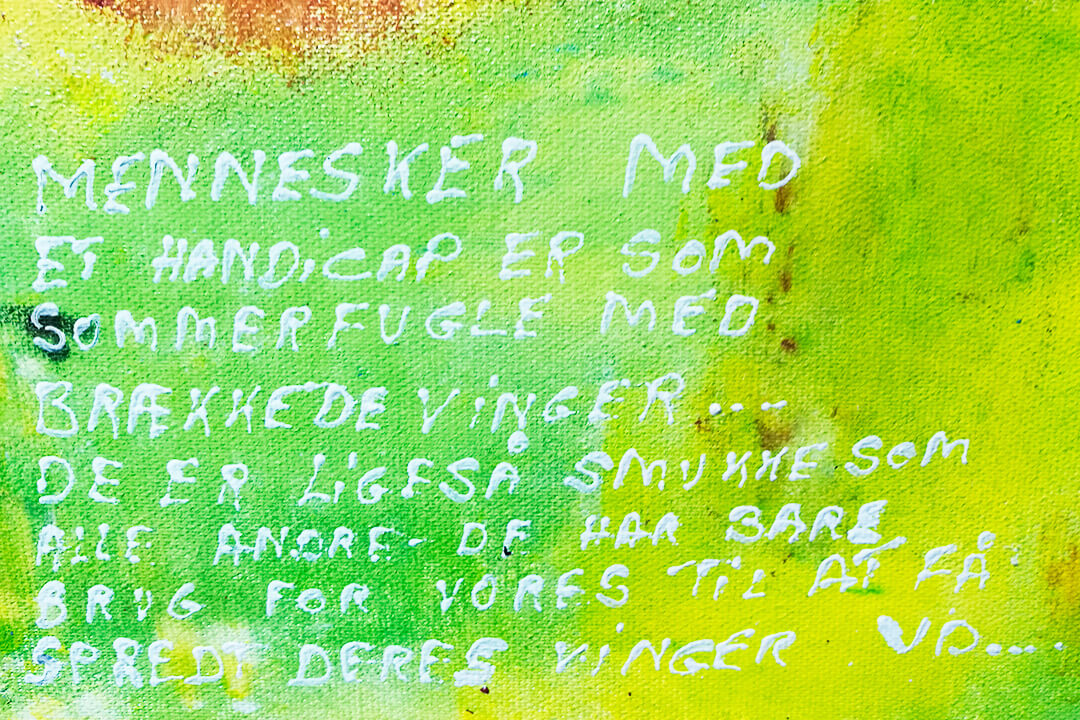 MENNESKER MED
ET HANDiCAP ER SOM
SOMMERFUGLE MED
BRÆKKEDE ViNGER...
DE ER LiGESÅ SMUKKE SOM
ALLE ANDRE- DE HAR BARE
BRUG FOR VORES TiL AT FÅ
SPREDT DERES ViNGER . UD....